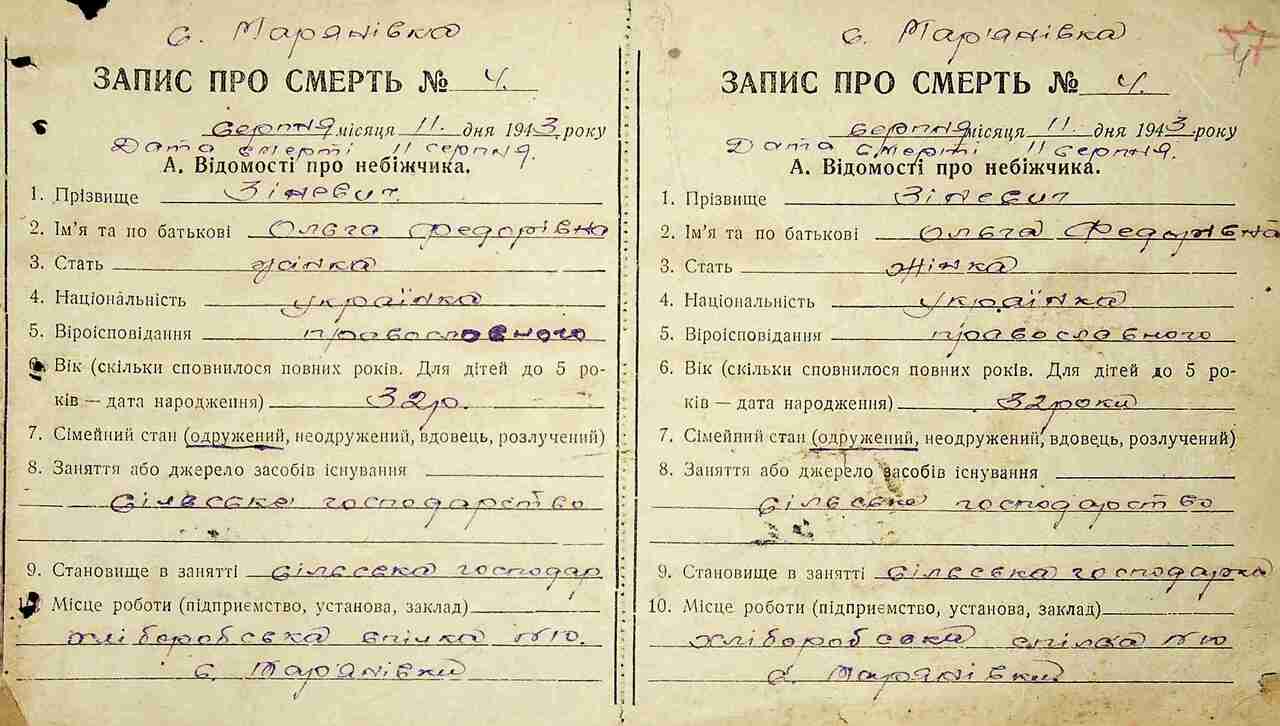 с. Марянівка
ЗАПИС ПРО СМЕРТЬ № 4.
серпня місяця 11. дня 1943. року
Дата смерті 11 серпня.
А. Відомості про небіжчика.
1. Прізвище Зіневич.
2. Ім'я та по батькові Ольга Федорівна
3. Стать жінка
4. Національність українка
5. Віроісповідання православного
6. Вік (скільки сповнилося повних років. Для дітей до 5 ро-
ків — дата народження) 32 р.
7. Сімейний стан (одружений, неодружений, вдовець, розлучений)
8. Заняття або джерело засобів існування
сільське господарство
9. Становище в занятті сільська господар
10. Місце роботи (підприємство, установа, заклад)
хліборобська спілка №10.
с. Марянівки
с. Мар'янівка
ЗАПИС ПРО СМЕРТЬ № 4.
серпня місяця 11. дня 1943 року
Дата смерті 11 серпня.
А. Відомості про небіжчика.
1. Прізвище Зіневич
2. Ім'я та по батькові Ольга Федорівна
3. Стать жінка
4. Національність українка
5. Віроісповідання православного
6. Вік (скільки сповнилося повних років. Для дітей до 5 ро-
ків — дата народження) 32 роки
7. Сімейний стан (одружений, неодружений, вдовець, розлучений)
8. Заняття або джерело засобів існування
сільське господарство
9. Становище в занятті сільська господарка
10. Місце роботи (підприємство, установа, заклад)
хліборобська спілка №10
с. Марянівки